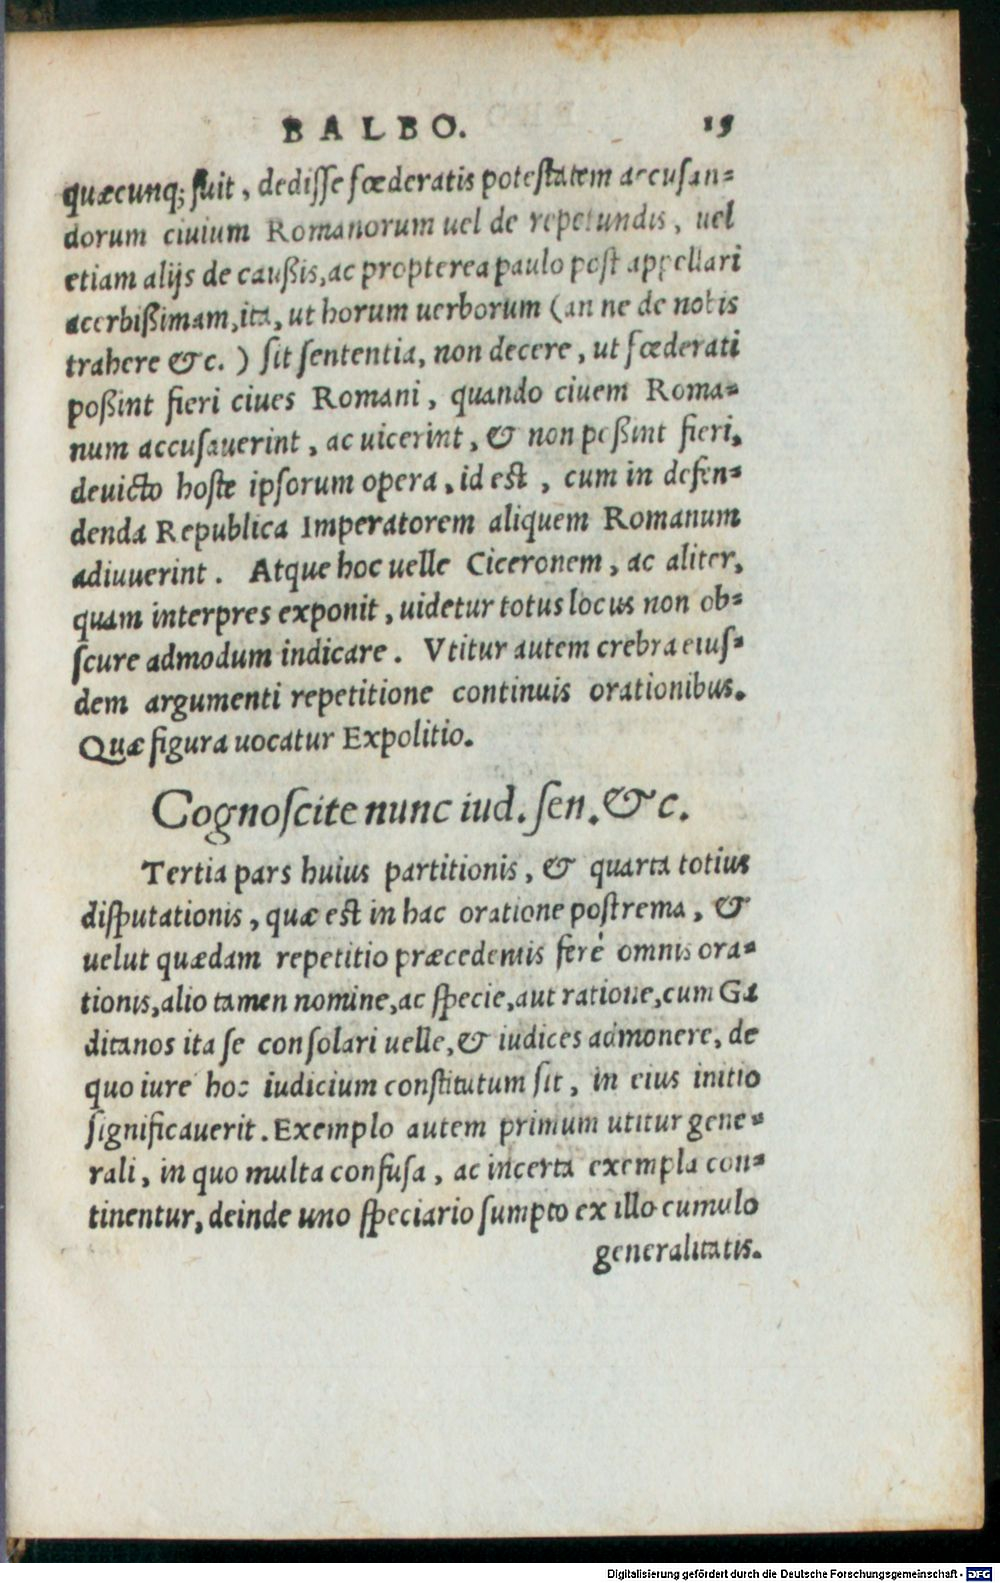 BALBO. 15
quæcunq; fuit, dedisse fœderatis potestatem accusan-
dorum ciuium Romanorum uel de repetundis, uel
etiam alijs de caußis, ac propterea paulo post appellari
acerbißimam, ita, ut horum uerborum (an ne de nobis
trahere &c.) sit sententia, non decere, ut fœderati
poßint fieri ciues Romani, quando ciuem Roma-
num accusauerint, ac uicerint, & non poßint fieri,
deuicto hoste ipsorum opera, id est, cum in defen-
denda Republica Imperatorem aliquem Romanum
adiuuerint. Atque hoc uelle Ciceronem, ac aliter,
quam interpres exponit, uidetur totus locus non ob-
scure admodum indicare. Vtitur autem crebra eius-
dem argumenti repetitione continuis orationibus.
Quæ figura uocatur Expolitio.
Cognoscite nunc iud. sen. &c.
Tertia pars huius partitionis, & quarta totius
disputationis, quæ est in hac oratione postrema, &
uelut quædam repetitio præcedentis ferè omnis ora-
tionis, alio tamen nomine, ac specie, aut ratione, cum Ga
ditanos ita se consolari uelle, & iudices admonere, de
quo iure hoc iudicium constitutum sit, in eius initio
significauerit. Exemplo autem primum utitur gene-
rali, in quo multa confusa, ac incerta exempla con-
tinentur, deinde uno speciario sumpto ex illo cumulo
generalitatis.
Digitalisierung gefördert durch die Deutsche Forschungsgemeinschaft - DFG